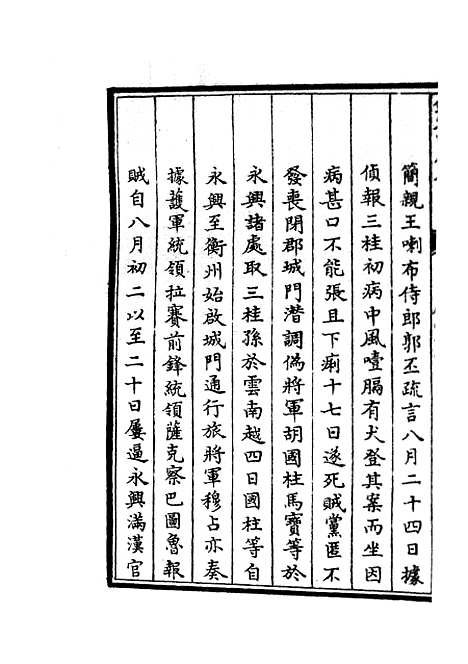 簡親王喇布侍郎郭丕疏言八月二十四日據
偵報三桂初病中風噎膈有犬登其案而坐因
病甚口不能張且下痢十七日遂死賊黨匿不
發喪閉郡城門潛調偽將軍胡國柱馬寶等於
永興諸處取三桂孫於雲南越四日國柱等自
永興至衡州始啟城門通行旅將軍穆占亦奏
據護軍統領拉賽前鋒統領薩克察巴圖魯報
賊自八月初二以至二十日屢逼永興滿漢官